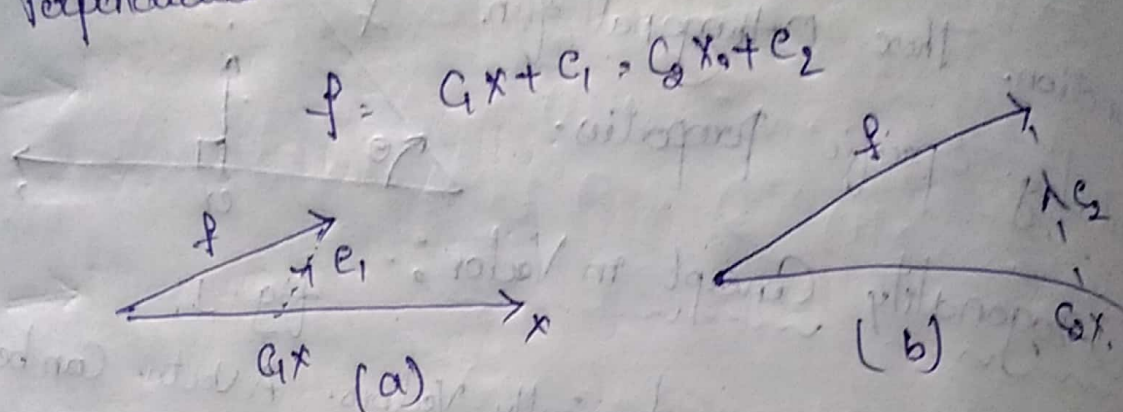 f = C₁x + e₁ = C₂x + e₂
f
e₁
x
C₁x
(a)
f
e₂
C₂x
(b)